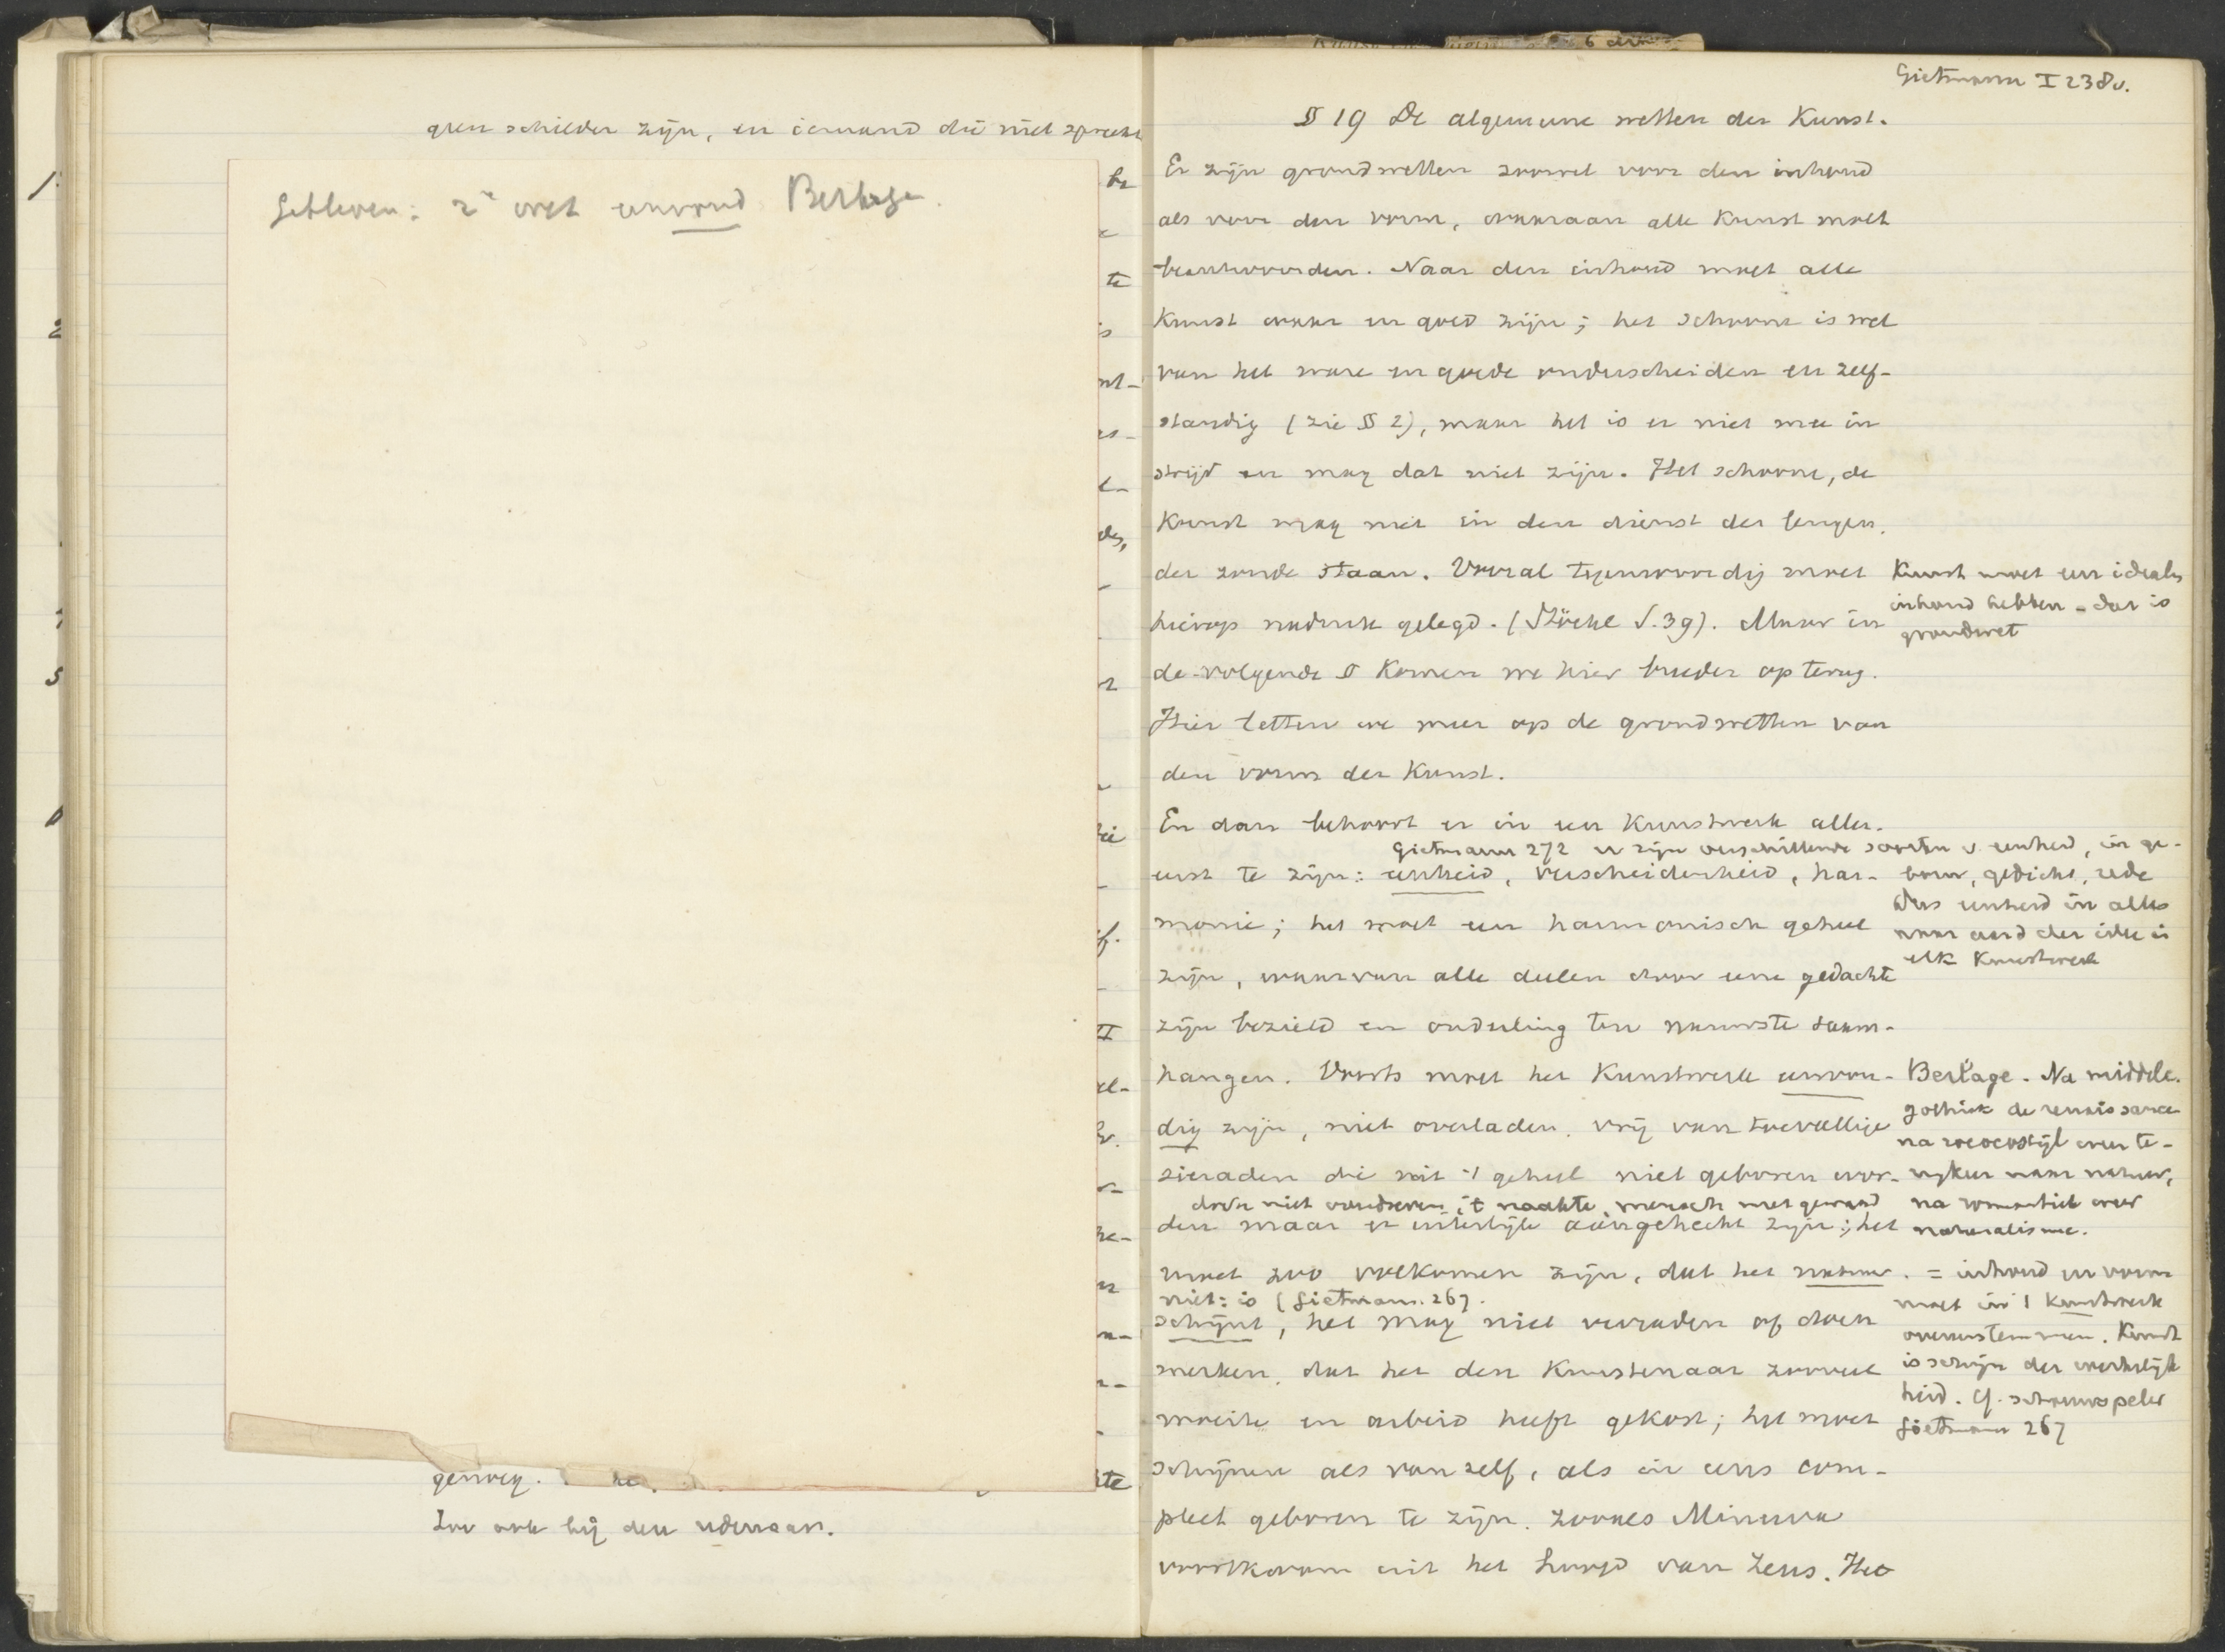 geen schilder zijn, en iemand die niet spreekt
Gebleven: 2e wet eenvoud Berlage.
genoeg.
Zoo ook bij den redenaar.
Gietmann I 238v.
§ 19 De algemeene wetten der Kunst.
Er zijn grondwetten zoowel voor den inhoud
als voor den vorm, waaraan alle Kunst moet
beantwoorden. Naar den inhoud moet alle
Kunst waar en goed zijn; het schoone is wel
van het ware en goede onderscheiden en zelf-
standig (zie § 2), maar het is er niet mee in
strijd en mag dat niet zijn. Het schoone, de
Kunst mag niet in den dienst der leugen,
der zonde staan. Vooral tegenwoordig moet
hierop nadruk gelegd. (Stöckl S. 39). Maar in
de volgende § Komen we hier breeder op terug.
Hier letten we meer op de grondwetten van
den vorm der Kunst.
Kunst moet een idealen
inhoud hebben - dat is
grondwet
En dan behoort er in een Kunstwerk aller-
Gietmann 272 er zijn verschillende soorten v. eenheid, in ge-
eerst te zijn: eenheid, verscheidenheid, har-
bouw, gedicht, rede
monie; het moet een harmonisch geheel
dus eenheid in alles
naar aard der idee in
elk Kunstwerk
zijn, waarvan alle deelen door eene gedachte
zijn bezield en onderling ten nauwste saam-
hangen. Voorts moet het Kunstwerk eenvou-
dig zijn, niet overladen, vrij van toevallige
sieraden die uit 't geheel niet geboren wor-
doch niet overdreven, 't naakte, mensch met gewaad
den maar er uiterlijk aangehecht zijn; het
Berlage. Na middel.
gothiek de renaissance
na rococostijl weer te-
rugkeer naar natuur,
na romantiek weer
naturalisme.
moet zoo volkomen zijn, dat het natuur
niet: is (Gietmann. 267.
schijnt, het mag niet verraden of doen
merken, dat het den Kunstenaar zooveel
moeite en arbeid heeft gekost; het moet
schijnen als vanzelf, als in eens com-
pleet geboren te zijn, zooals Minerva
voortkwam uit het hoofd van Zeus. Het
= inhoud en vorm
moet in 1 Kunstwerk
overeenstemmen. Kunst
is schijn der werkelijk
heid. Cf. schouwspeler
Gietmann 267